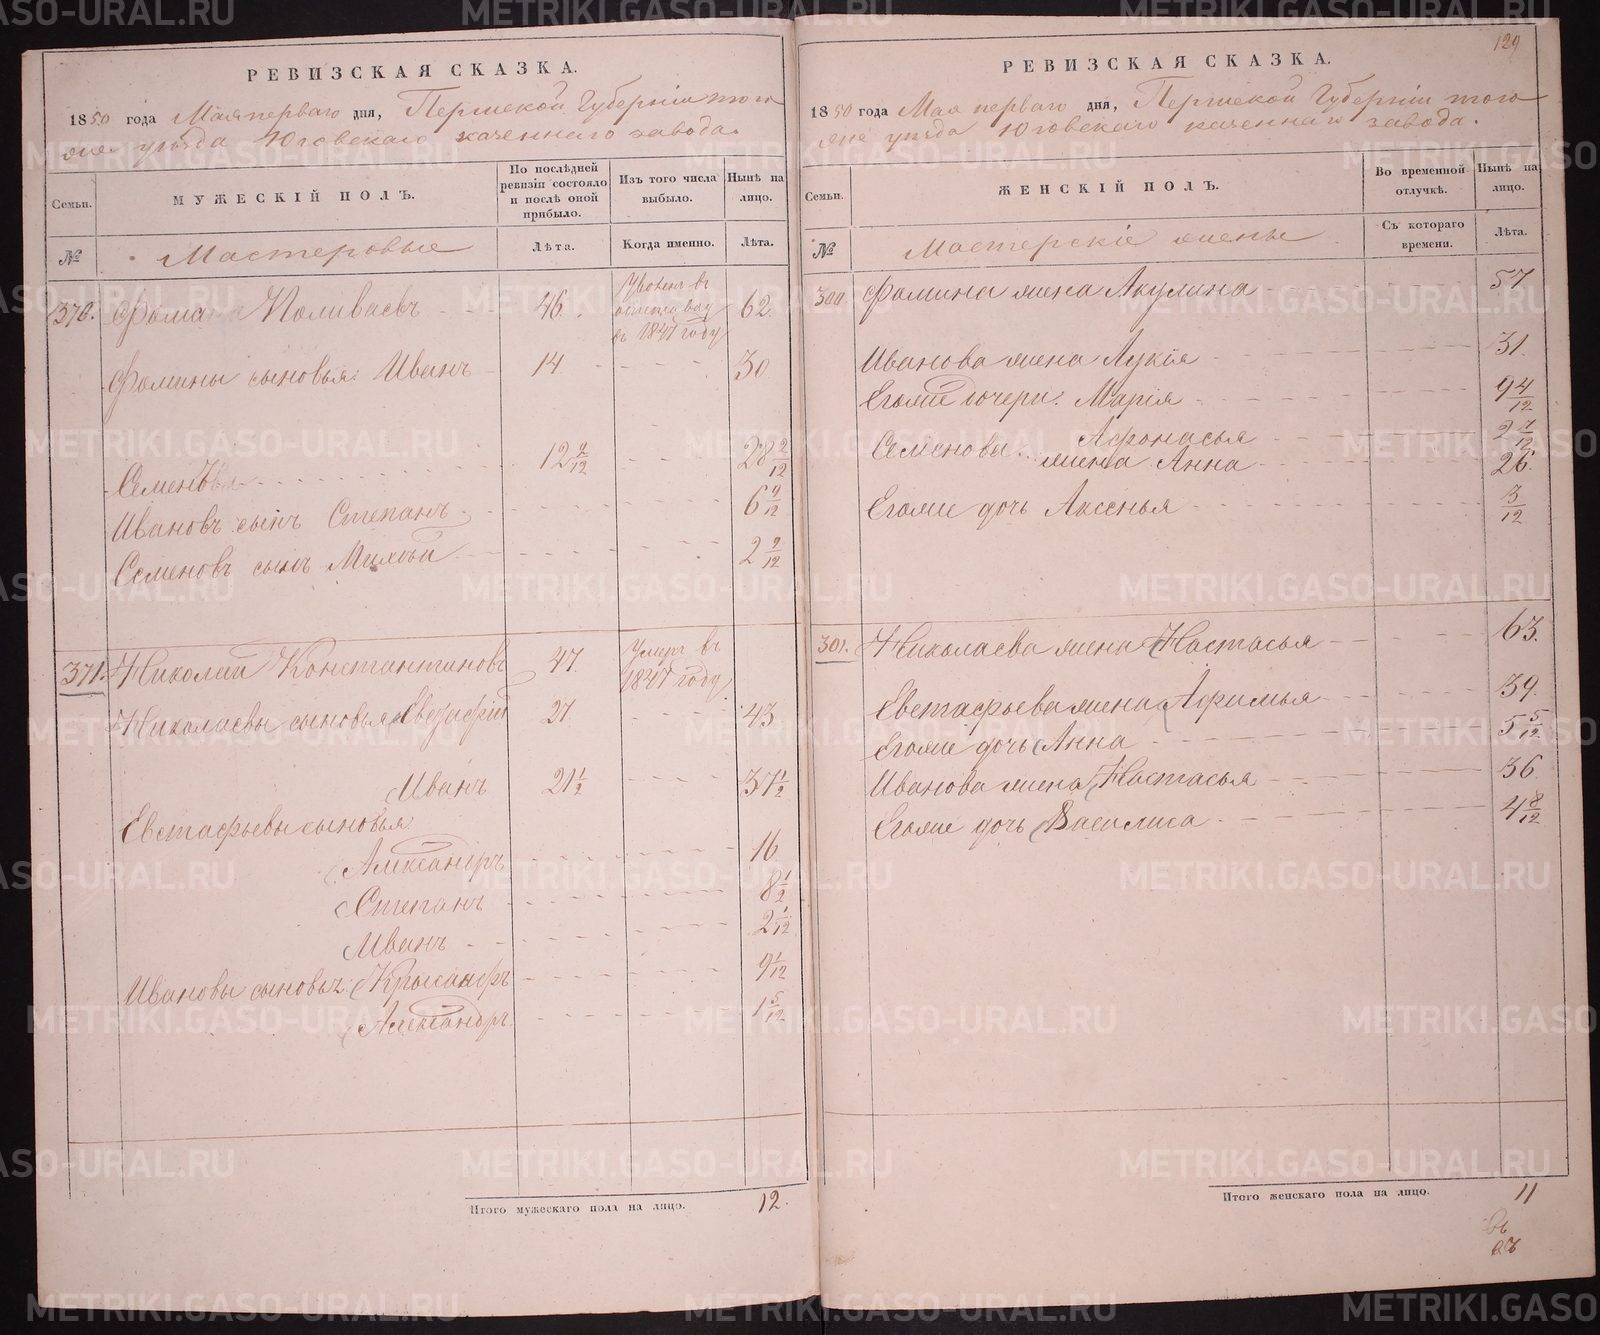 РЕВИЗСКАЯ СКАЗКА.
1850 года Мая перваго дня, Пермской Губерніи того
же уѣзда Юговскаго казеннаго завода.
Семьи.
МУЖЕСКІЙ ПОЛЪ.
По послѣдней ревизіи состояло и послѣ оной прибыло.
Изъ того числа выбыло.
Нынѣ на лицо.
№
Мастеровые
Лѣта.
Когда именно.
Лѣта.
370. Фома Поливаевъ 46. Уволенъ въ 62
въ 1847 году
Фомины сыновья: Иванъ 14 30
Семенъ 12 2/12 28 2/12
Ивановъ сынъ Степанъ 6 9/12
Семеновъ сынъ 2 2/12
371. Николай Константиновъ 47. Умеръ въ
1847 году
Николаевы сыновья Евстафій 27 43
Иванъ 21 1/2 37 1/2
Евстафьевы сыновья
Александръ 16
Степанъ 8 1/2
Иванъ 2 1/12
Ивановы сыновья: 9 1/12
Александръ. 1 5/12
Итого мужескаго пола на лицо. 12.
129
РЕВИЗСКАЯ СКАЗКА.
1850 года Мая перваго дня, Пермской Губерніи того
же уѣзда Юговскаго казеннаго завода.
Семьи.
ЖЕНСКІЙ ПОЛЪ.
Во временной отлучкѣ.
Нынѣ на лицо.
№
Мастерскіе жены
Съ котораго времени.
Лѣта.
Фомина жена Акулина 57
Иванова жена Лукія 31.
Егоже дочери: Марія 9 4/12
Афонасья 2 7/12
Семенова жена Анна 26.
Егоже дочь Аксенья 3/12
Николаева жена Настасья 63.
Евстафьева жена Афимья 39.
Егоже дочь Анна 5 5/12
Иванова жена Настасья 36.
Егоже дочь Василиса 4 8/12
Итого женскаго пола на лицо. 11
METRIKI.GASO-URAL.RU